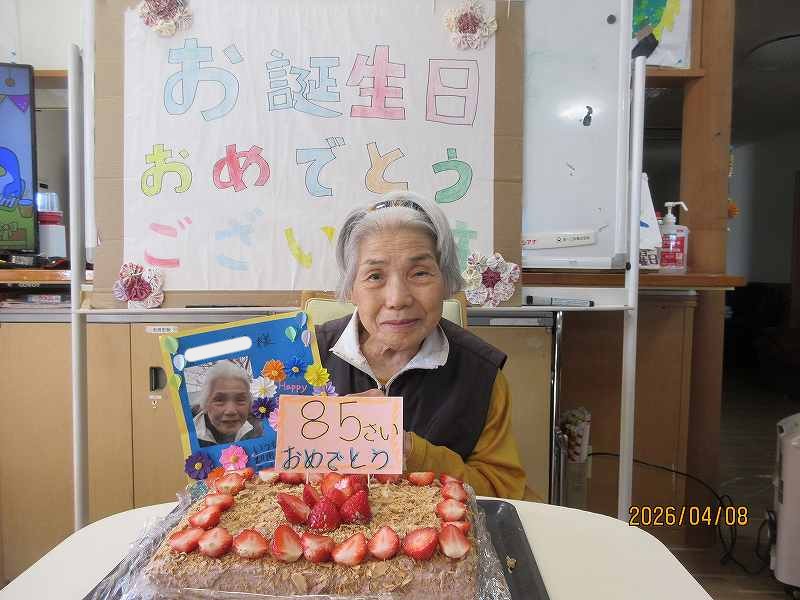 お誕生日
おめでとう
ござい
様
Happy
85さい
おめでとう
2026/04/08